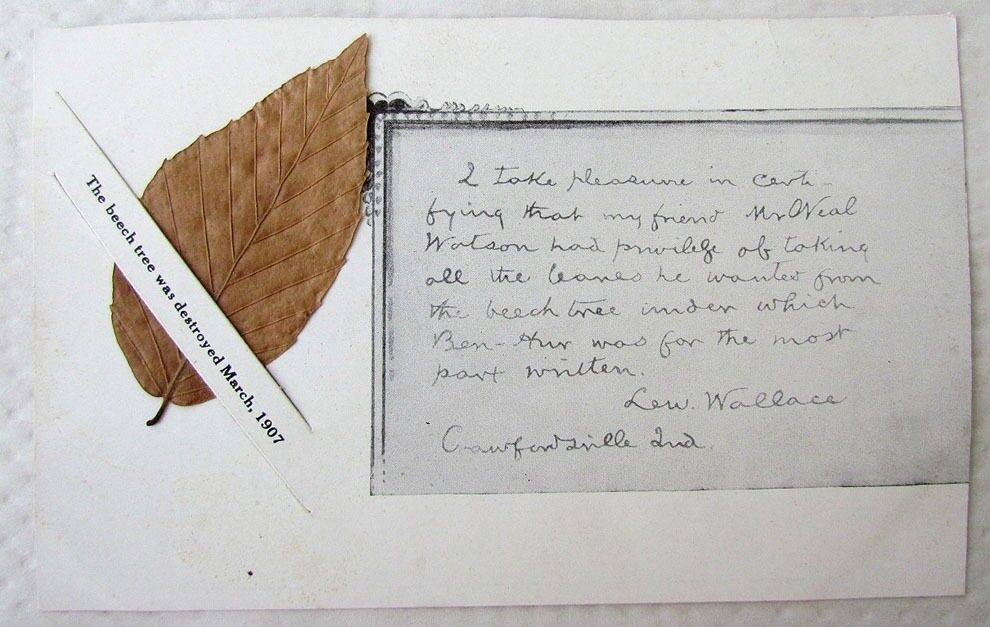 The beech tree was destroyed March, 1907
I take pleasure in certi-
fying that my friend Mr O'Neal
Watson had privilege of taking
all the leaves he wanted from
the beech tree under which
Ben-Hur was for the most
part written.
Lew. Wallace
Crawfordsville Ind.